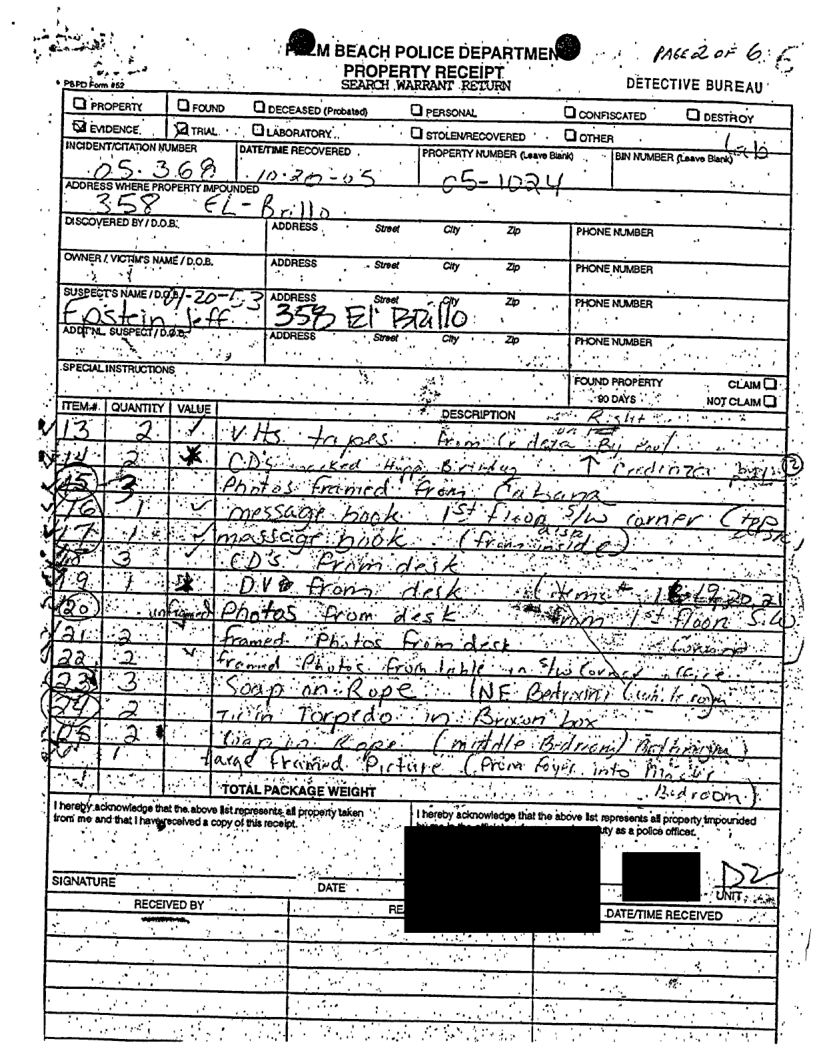 PALM BEACH POLICE DEPARTMENT
PAGE 2 OF 6
PROPERTY RECEIPT
SEARCH WARRANT RETURN
PBPD Form #52
DETECTIVE BUREAU
PROPERTY FOUND DECEASED (Probated) PERSONAL CONFISCATED DESTROY
EVIDENCE TRIAL LABORATORY STOLEN/RECOVERED OTHER Lab
INCIDENT/CITATION NUMBER DATE/TIME RECOVERED PROPERTY NUMBER (Leave Blank) BIN NUMBER (Leave Blank)
05-368 10-20-05 05-1024
ADDRESS WHERE PROPERTY IMPOUNDED
358 EL-Brillo
DISCOVERED BY / D.O.B. ADDRESS Street City Zip PHONE NUMBER
OWNER / VICTIM'S NAME / D.O.B. ADDRESS Street City Zip PHONE NUMBER
SUSPECT'S NAME / D.O.B. 1-20-53 ADDRESS Street City Zip PHONE NUMBER
Epstein Jeff 358 El Brillo
ADDT'NL. SUSPECT / D.O.B. ADDRESS Street City Zip PHONE NUMBER
SPECIAL INSTRUCTIONS FOUND PROPERTY CLAIM
90 DAYS NOT CLAIM
ITEM # QUANTITY VALUE DESCRIPTION Right
13 2 VHS tapes from By
14 2 CD's marked Happ Birthday Credenza
15 3 Photos framed from Cabana
16 1 message book 1st floor S/W corner (top desk
17 1 massage book (from inside)
18 3 CD's from desk
19 1 DVD from desk (items # 18,19,20,21
20 unframed Photos from desk from 1st floor S.W
21 2 framed Photos from desk
22 2 framed Photos from table in S/W corner office
23 3 Soap on Rope (NE Bedroom)
24 2 Twin Torpedo in Brown box
25 2 Soap on Rope (middle Bedroom) Bathroom)
26 1 Large framed Picture (From Foyer into Master
Bedroom)
TOTAL PACKAGE WEIGHT
I hereby acknowledge that the above list represents all property taken
from me and that I have received a copy of this receipt.
I hereby acknowledge that the above list represents all property impounded
duty as a police officer.
D2
SIGNATURE DATE UNIT
RECEIVED BY RE DATE/TIME RECEIVED